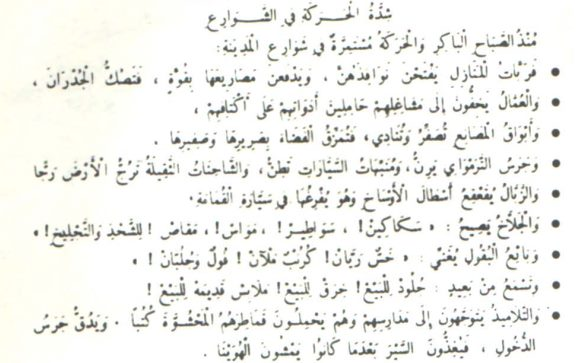 شِدَّةُ الْحَرَكَةِ فِي الشَّوَارِعِ
مُنْذُ الصَّبَاحِ الْبَاكِرِ وَالْحَرَكَةُ مُسْتَمِرَّةٌ فِي شَوَارِعِ الْمَدِينَةِ:
• فَرَبَّاتُ الْمَنَازِلِ يَفْتَحْنَ نَوَافِذَهُنَّ . وَيَدْفَعْنَ مَصَارِيعَهَا بِقُوَّةٍ ، فَتَصُكُّ الْجُدْرَانَ ،
• وَالْعُمَّالُ يَخِفُّونَ إِلَى مَشَاغِلِهِمْ حَامِلِينَ أَدَوَاتِهِمْ عَلَى أَكْتَافِهِمْ ،
• وَأَبْوَاقُ الْمَصَانِعِ تُصَفِّرُ وَتُنَادِي، فَتُمَزِّقُ الْفَضَاءَ بِصَرِيرِهَا وَصَفِيرِهَا .
• وَجَرَسُ التَّرَمْوَايِ يَرِنُّ، وَمُنَبِّهَاتُ السَّيَّارَاتِ تَطِنُّ، وَالشَّاحِنَاتُ الثَّقِيلَةُ تَرُجُّ الْأَرْضَ رَجًّا
• وَالزَّبَّالُ يُقَعْقِعُ أَسْطَالَ الْأَوْسَاخِ وَهُوَ يُفْرِغُهَا فِي سَيَّارَةِ الْقُمَامَةِ.
• وَالْجَلَّاخُ يَصِيحُ : « سَكَاكِينْ! ، سَوَاطِيرْ! ، مَوَاسْ! ، مَقَاصْ ! لِلشَّحْذِ وَالتَّجْلِيخِ! »
• وَبَائِعُ الْبُقُولِ يُغَنِّي : « خَسٌّ رَيَّانْ! كُرُنْبٌ مَلْآنْ ! فُولٌ وَجُلْبَانْ ! »
• وَنَسْمَعُ مِنْ بَعِيدٍ : جُلُودْ لِلْبَيْعْ! خِرَقْ لِلْبَيْعْ! مَلَابِسْ قَدِيمَهْ لِلْبَيْعْ !
• وَالتَّلَامِيذُ يَتَوَجَّهُونَ إِلَى مَدَارِسِهِمْ وَهُمْ يَحْمِلُونَ قَمَاطِرَهُمْ الْمَحْشُوَّةَ كُتُبًا . وَيَدُقُّ جَرَسُ
الدُّخُولِ ، فَيُغِذُّونَ السَّيْرَ بَعْدَمَا كَانُوا يَمْشُونَ الْهُوَيْنَا .